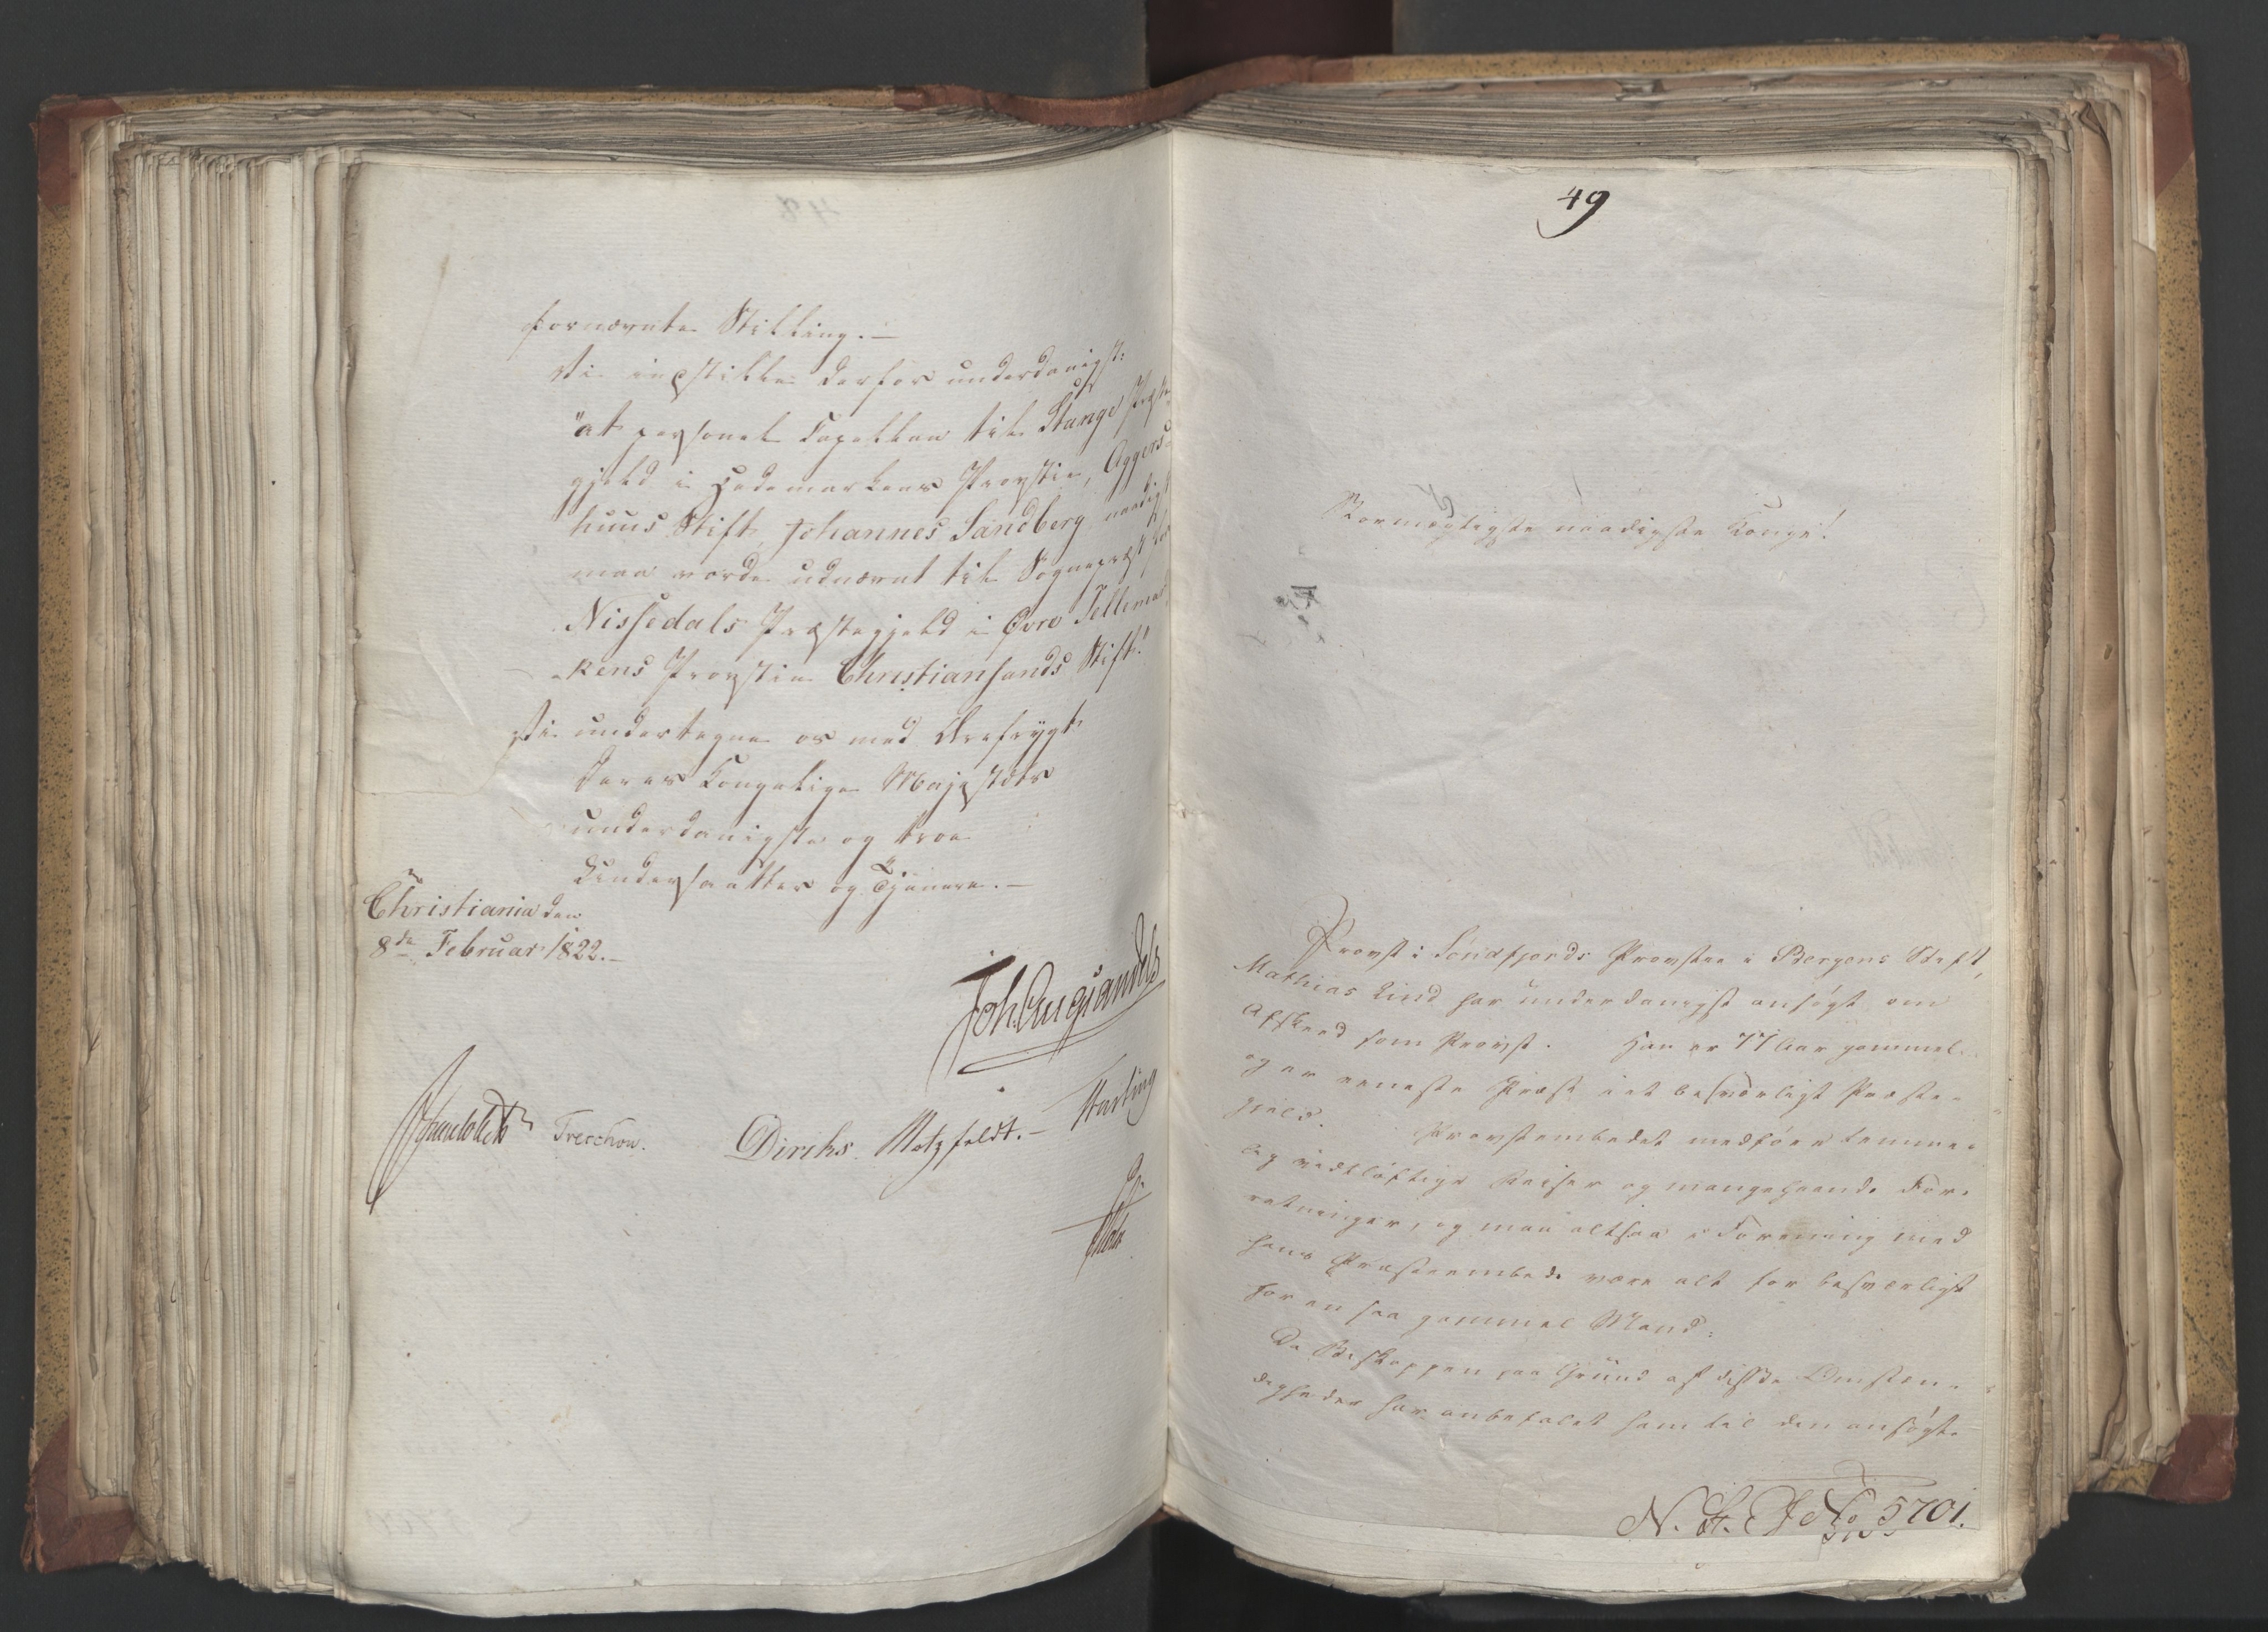 fornævnte Stilling.—
Vi indstille derfor underdanigst:
"at personel Capellan til Stange Præste-
gjeld i Hedemarkens Provstie, Aggers-
huus Stift, Johannes Sandberg naadigst
maa vorde udnævnt til Sognepræst for
Nissedals Præstegjeld i Øvre Tellemar-
kens Provstie Christiansands Stift!
Vi undertegne os med Ærefrygt
Deres Kongelige Majestæts
underdanigste og troe
Undersaatter og Tjenere.—
Christiania den
8de Februar 1822.—
Joh. Aug Sandels
Sommerhielm Treschow. Diriks. Motzfeldt.— Fasting
Holst
49
Stormægtigste naadigste Konge!
Provst i Søndfjords Provstie i Bergens Stift,
Mathias Lind har underdanigst ansøgt om
Afskeed som Provst. Han er 77 Aar gammel
og er eneste Præst i et besværligt Præste-
gjeld. Provstembedet medfører temme-
lig vidtløftige Reiser og mangehaande For-
retninger, og maa altsaa i Forening med
hans Præsteembede være alt for besværligt
for en saa gammel Mand.
Da Biskoppen paa Grund af disse Omstæn-
digheder har anbefalet ham til den ansøgte
N. St. J No 5701.